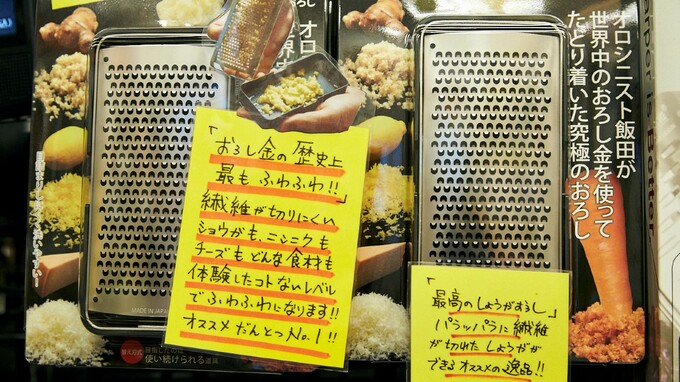 オロシニスト飯田が
世界中のおろし金を使って
たどり着いた究極のおろし
「おろし金の歴史上
最もふわふわ!!」
繊維が切りにくい
ショウガも、ニンニクも
チーズもどんな食材も
体験したコトないレベル
でふわふわになります!!
オススメだんとつNo.1!!
「最高のしょうがおろし」
パラッパラに繊維
が切れたしょうがが
できるオススメの逸品!!
MADE IN JAPAN
替え刃式
目指したのは
使い続けられる道具